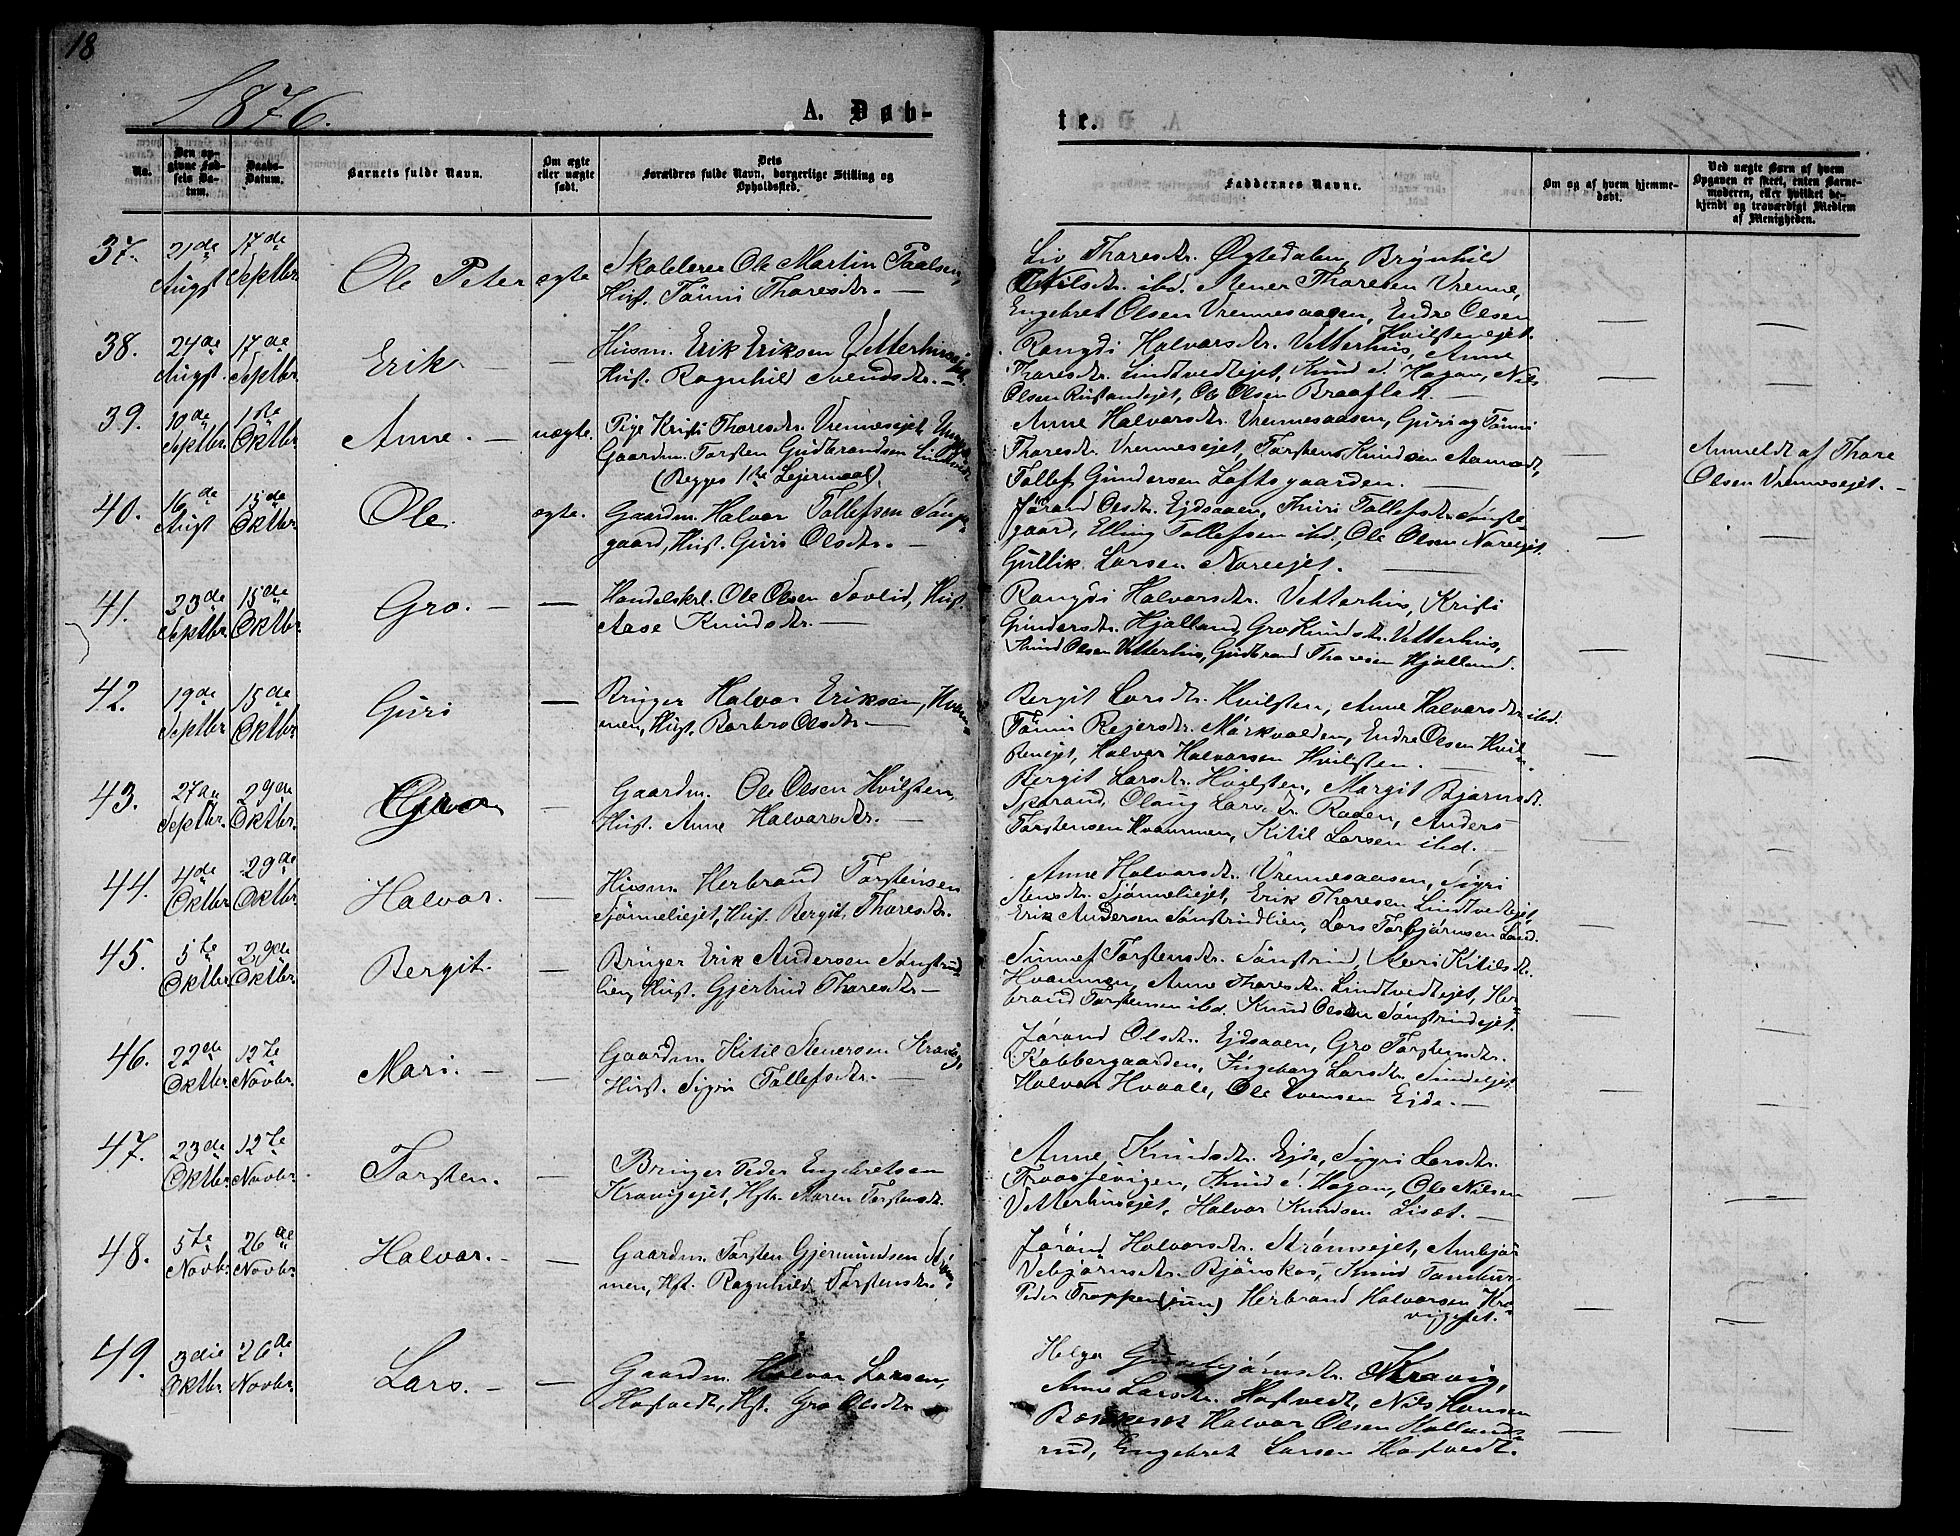 18
1876.
A. Døb-
te.
No.
Den op-
givne Fød-
sels Da-
tum.
Daabs-
Datum.
Barnets fulde Navn.
Om ægte
eller uægte
født.
Dets
Forældres fulde Navn, borgerlige Stilling og
Opholdssted.
Faddernes Navne.
Om og af hvem hjemme-
døbt.
Ved uægte Børn af hvem
Opgaven er skeet, enten Barne-
moderen, eller hvilket be-
kjendt og troværdigt Medlem
af Menigheden.
37. 21de Augst 17de Septbr. Ole Peter ægte
Skolelærer Ole Martin Paalsen,
Hust. Tønni Thoresdtr. —
Liv Thoresdtr. Øgtedalen, Brynhild
Nilsdtr. ibd. Stener Thoresen Vrenne,
Engebret Olsen Vrennesaasen, Endre Olsen
Hvilstenejet.
38. 24de Augst 17de Septbr. Erik — —
Husm. Erik Eriksen Vetterhusejet
Hust. Ragnhild Svendsdtr. —
Rangdi Halvorsdtr. Vetterhus, Anne
Thoresdtr. Lindtvedtejet, Knud S. Hagan, Nils
Olsen Rustandejet, Ole Olsen Braafladt. —
39. 10de Septbr. 1ste Oktbr. Anne. — uægte.
Pige Kristi Thoresdtr. Vrennesejet, Ungk.
Gaardm. Torsten Gudbrandsen Lindtvedt
(Begges 1ste Lejermaal).
Anne Halvorsdtr. Vrennesaasen, Guri og Tønni
Thoresdtr. Vrennesejet, Torsten Knudsen Aamodt,
Tollef Gundersen Loftsgaarden. —
Anmeldt af Thore
Olsen Vrennesejet. —
40. 16de Augst 15de Oktbr. Ole. ægte.
Gaardm. Halvor Tollefsen Sønste-
gaard, Hust. Guri Olsdtr. —
Jørand Olsdtr. Ejdsaaen, Thuri Tollefsdtr. Sønste-
gaard, Elling Tollefsen ibd., Ole Olsen Noreejet.
Gullik Larsen Noreejet. —
41. 23de Septbr. 15de Oktbr. Gro. — —
Handelskrl. Ole Olsen Sovlid, Hust.
Aase Knudsdtr. —
Rangdi Halvorsdtr. Vetterhus, Kristi
Gundersdtr. Hjalland, Gro Knudsdtr. Vetterhus,
Knud Olsen Vetterhus, Gudbrand Thoresen Hjalland.
42. 19de Septbr. 15de Oktbr. Guri —
Bruger Halvor Eriksen, Hvam-
men, Hust. Barbro Olsdtr. —
Bergit Larsdtr. Hvilsten, Anne Halvorsdtr. ibd.
Tønni Rejersdtr. Mørkvolden, Endre Olsen Hvil-
stenejet, Halvor Halvorsen Hvilsten. —
43. 27de Septbr. 29de Oktbr. Gro —
Gaardm. Ole Olsen Hvilsten,
Hust. Anne Halvorsdtr. —
Bergit Larsdtr. Hvilsten, Margit Bjørnsdtr.
Sporand, Olaug Larsdtr. Raaen, Anders
Torstensen Hvammen, Kitil Larsen ibd. —
44. 4de Oktbr. 29de Oktbr. Halvor. —
Husm. Herbrand Torstensen
Sjønneliejet, Hust. Bergit Thoresdtr.
Anne Halvorsdtr. Vrennesaasen, Sigri
Stensdtr. Sjønneliejet, Erik Thoresen Lindtvedtejet,
Erik Andersen Sønstrudlien, Lars Torbjørnsen Lond.
45. 5te Oktbr. 29de Oktbr. Bergit. —
Bruger Erik Andersen Sønstrud-
lien, Hust. Gjertrud Thoresdtr. —
Sunnef Torstensdtr. Sønstrud, Kari Kitilsdtr.
Hvammen, Anne Thoresdtr. Lindtvedtejet, Her-
brand Torstensen ibd. Knud Olsen Sønstrudejet.
46. 22de Oktbr. 12te Novbr. Mari. — —
Gaardm. Kitil Stenersen Kravig,
Hust. Sigri Tollefsdtr. —
Jørand Olsdtr. Ejdsaaen, Gro Torstensdtr.
Kobbergaarden, Ingeborg Larsdtr. Sundejet,
Halvor Hvaale, Ole Evensen Ejde. —
47. 23de Oktbr. 12te Novbr. Torsten. —
Bruger Peder Engebretsen
Kravigejet, Hst. Maren Torstensdtr.
Anne Knudsdtr. Ejde, Sigri Larsdtr.
Fraasjevigen, Knud S. Hagan, Ole Nilsen
Vetterhusejet, Halvor Knudsen Liset. —
48. 5te Novbr. 26de Novbr. Halvor. — —
Gaardm. Torsten Gjermundsen Strøm-
men, Hst. Ragnhild Torstensdtr.
Jørånd Halvorsdtr. Strømsejet, Ambjør
Vebjørnsdtr. Bjønskos, Knud Tambur,
Peder Troppen (jun) Herbrand Halvorsen Kra-
vigejet.
49. 3die Oktbr. 26de Novbr. Lars. — —
Gaardm. Halvor Larsen,
Hoftvedt, Hst. Gro Olsdtr.
Helga Gunbjørnsdtr. Kravig,
Anne Larsdtr. Hoftvedt, Nils Hansen
Halvor Olsen Holland-
rud, Engebret Larsen Hoftvedt.